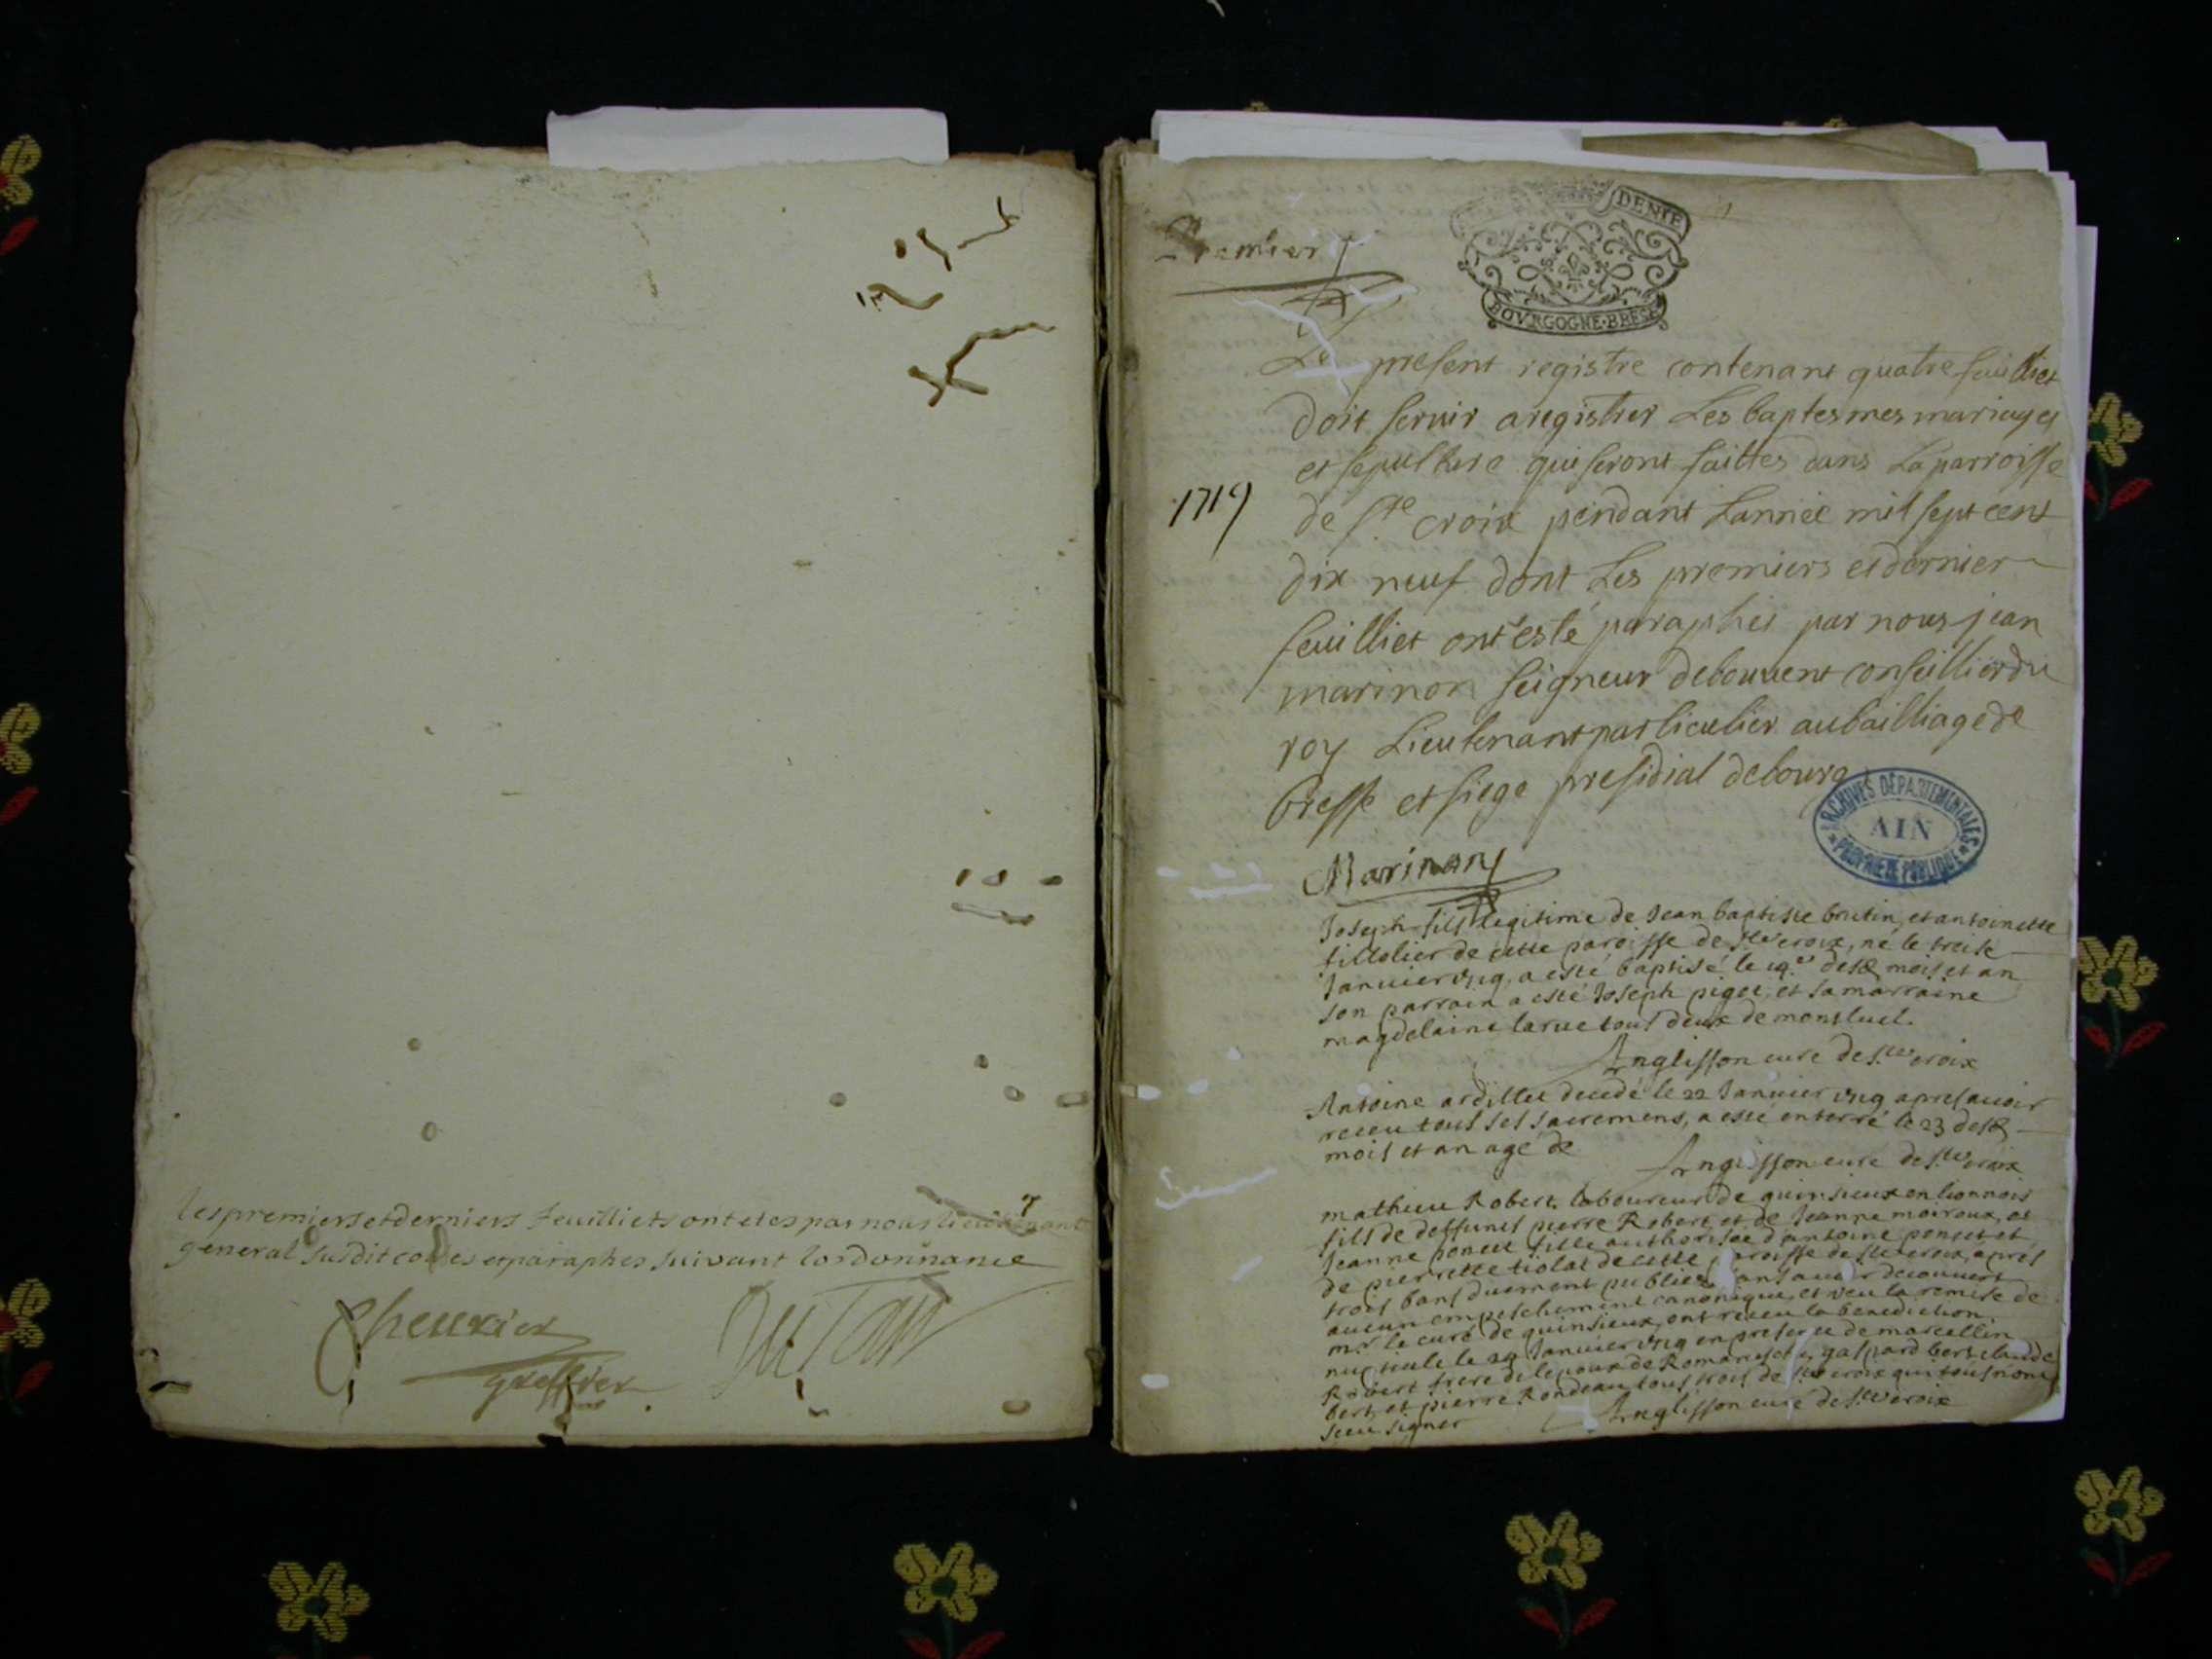 les premiers et derniers feuilliets ont etes par nous lieutenant
general susdit cottes et paraphes suivant lordonnance
Cheuxier
greffier
Premier
DENIE
BOVRGOGNE·BRESE
Le present registre contenant quatre feuilliet
doit servir a registrer Les baptesmes mariages
et sepulture qui seront faittes dans La parroisse
1719
de Ste croix pendant Lannée mil sept cent
dix neuf dont Les premiers et dernier
feuilliet ont esté paraphés par nous jean
marinon seigneur de bouvent conseillier du
roy Lieutenant particulier au bailliage de
bresse et siege presidial de bourg
ARCHIVES DÉPARTEMENTALES
AIN
PROPRIÉTÉ PUBLIQUE
Marinon
Joseph fils legitime de Jean baptiste brutin, et antoinette
fillolier de cette paroisse de Ste croix, né le treise
Janvier 1719, a esté baptisé le 19e desd mois et an
son parrain a esté Joseph piget, et sa marraine
magdelaine larue tous deux de montluel.
Anglisson curé de Ste croix
Antoine ardillet decedé le 22 Janvier 1719 apres avoir
receu tous ses sacremens, a esté enterré le 23 desd
mois et an agé de
Anglisson curé de Ste croix
mathieu Robert laboureur de quinsieux en lionnois
fils de deffunts pierre Robert et de Jeanne moiroux, et
Jeanne poncet fille authorisée d'antoine poncet et
de pierrette tiolat de cette paroisse de Ste croix, après
trois bans duement publiez sans avoir decouvert
aucun empeschement canonique, et veu la remise de
mr le curé de quinsieux, ont receu la benediction
nuptiale le 24 Janvier 1719 en presence de marcellin
Robert frere de lepoux de Romaneche, gaspard bert claude
bert, et pierre Rondeau tous trois de Ste croix qui tous n'ont
sceu signer
Anglisson curé de Ste croix